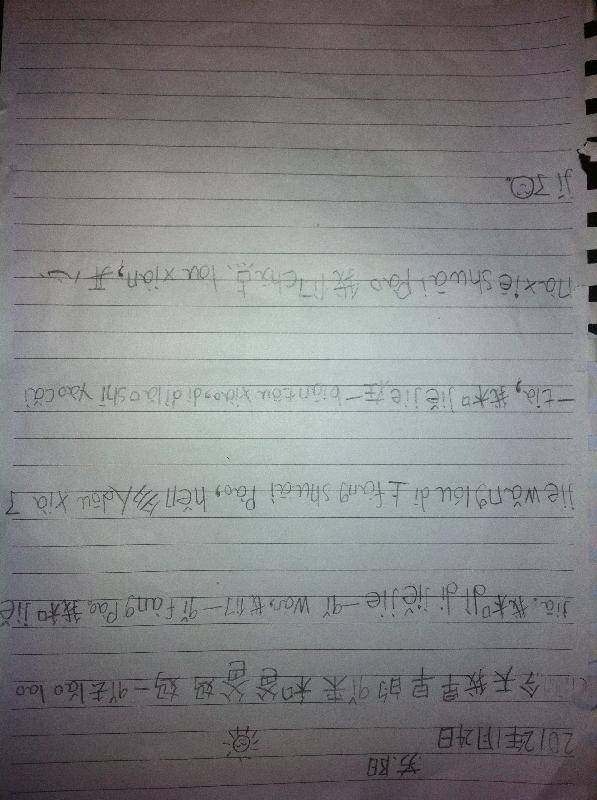 苏阳
2012年1月24日
今天我早早的qǐ来和爸爸妈妈一qǐ去lǎo lao
jiā。我和dì di jiějie一qǐ wan,我们一qǐ fàng Pao。我和jiě
jie wǎng lóu dǐ 上fàng shuāi Pào, hěn多人dōu xià了
一tiào,我和jiějie在一biān tōu xiào, dì dì lǎo shī yào cǎi
nà xiē shuāi Pào 我们chà点 lòu xiàn,开心
jí了。